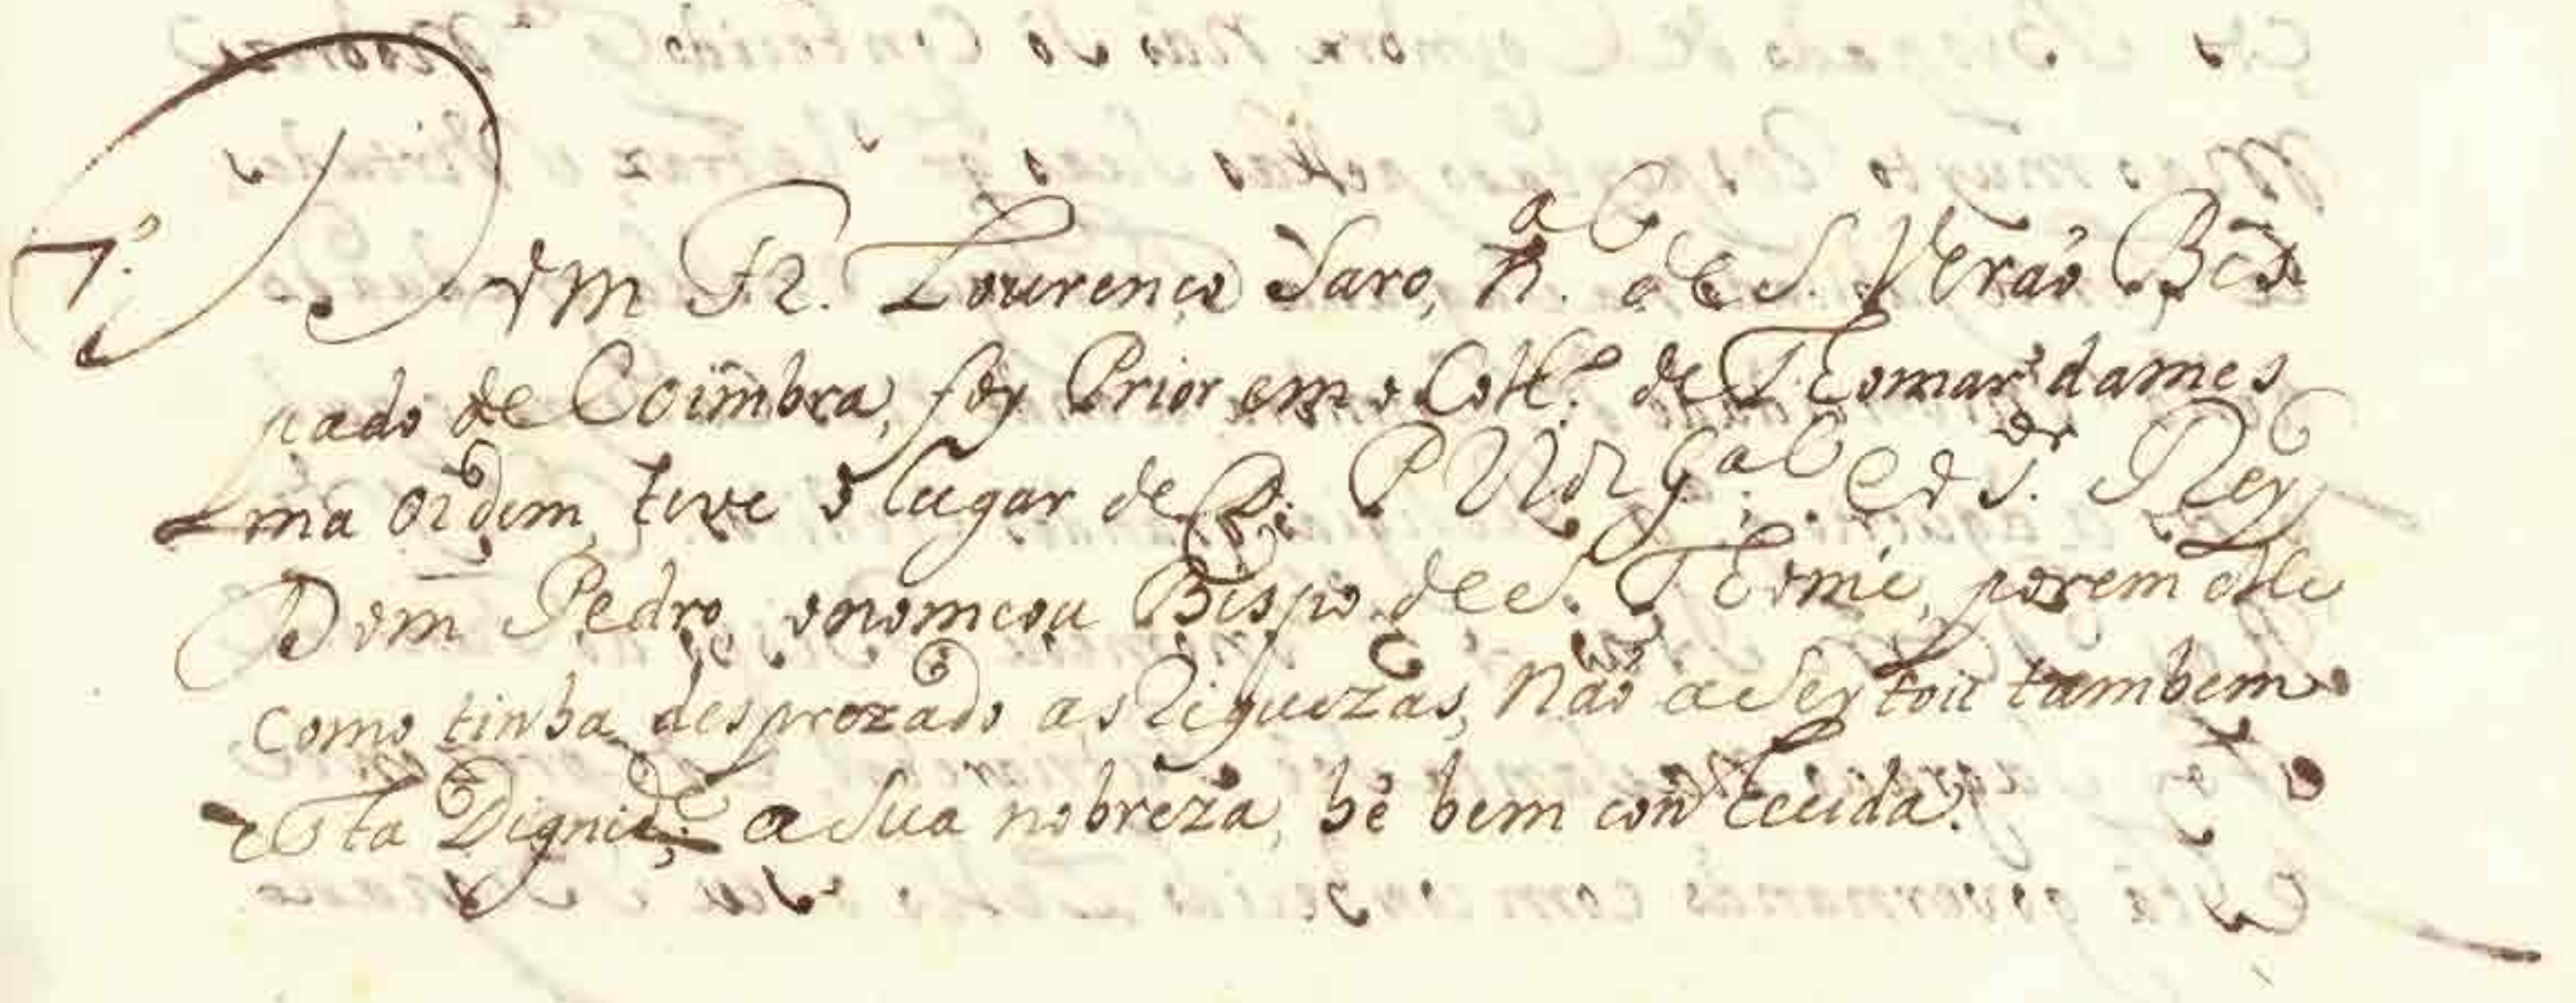 7.º Dom Fr. Lourenço Saro, n.al de S. Verão Bis
pado de Coimbra, foy Prior em o Coll.º de Thomar da mes
ma ordem, teve o lugar de D. P. Vigr G.al e o S.or Rey
Dom Pedro, o nomeou Bispo de S. Thomé, porem elle
como tinha desprezado as Riquezas, Não aseytou tambem
esta Dignid.e; a sua nobreza, hé bem conhecida.